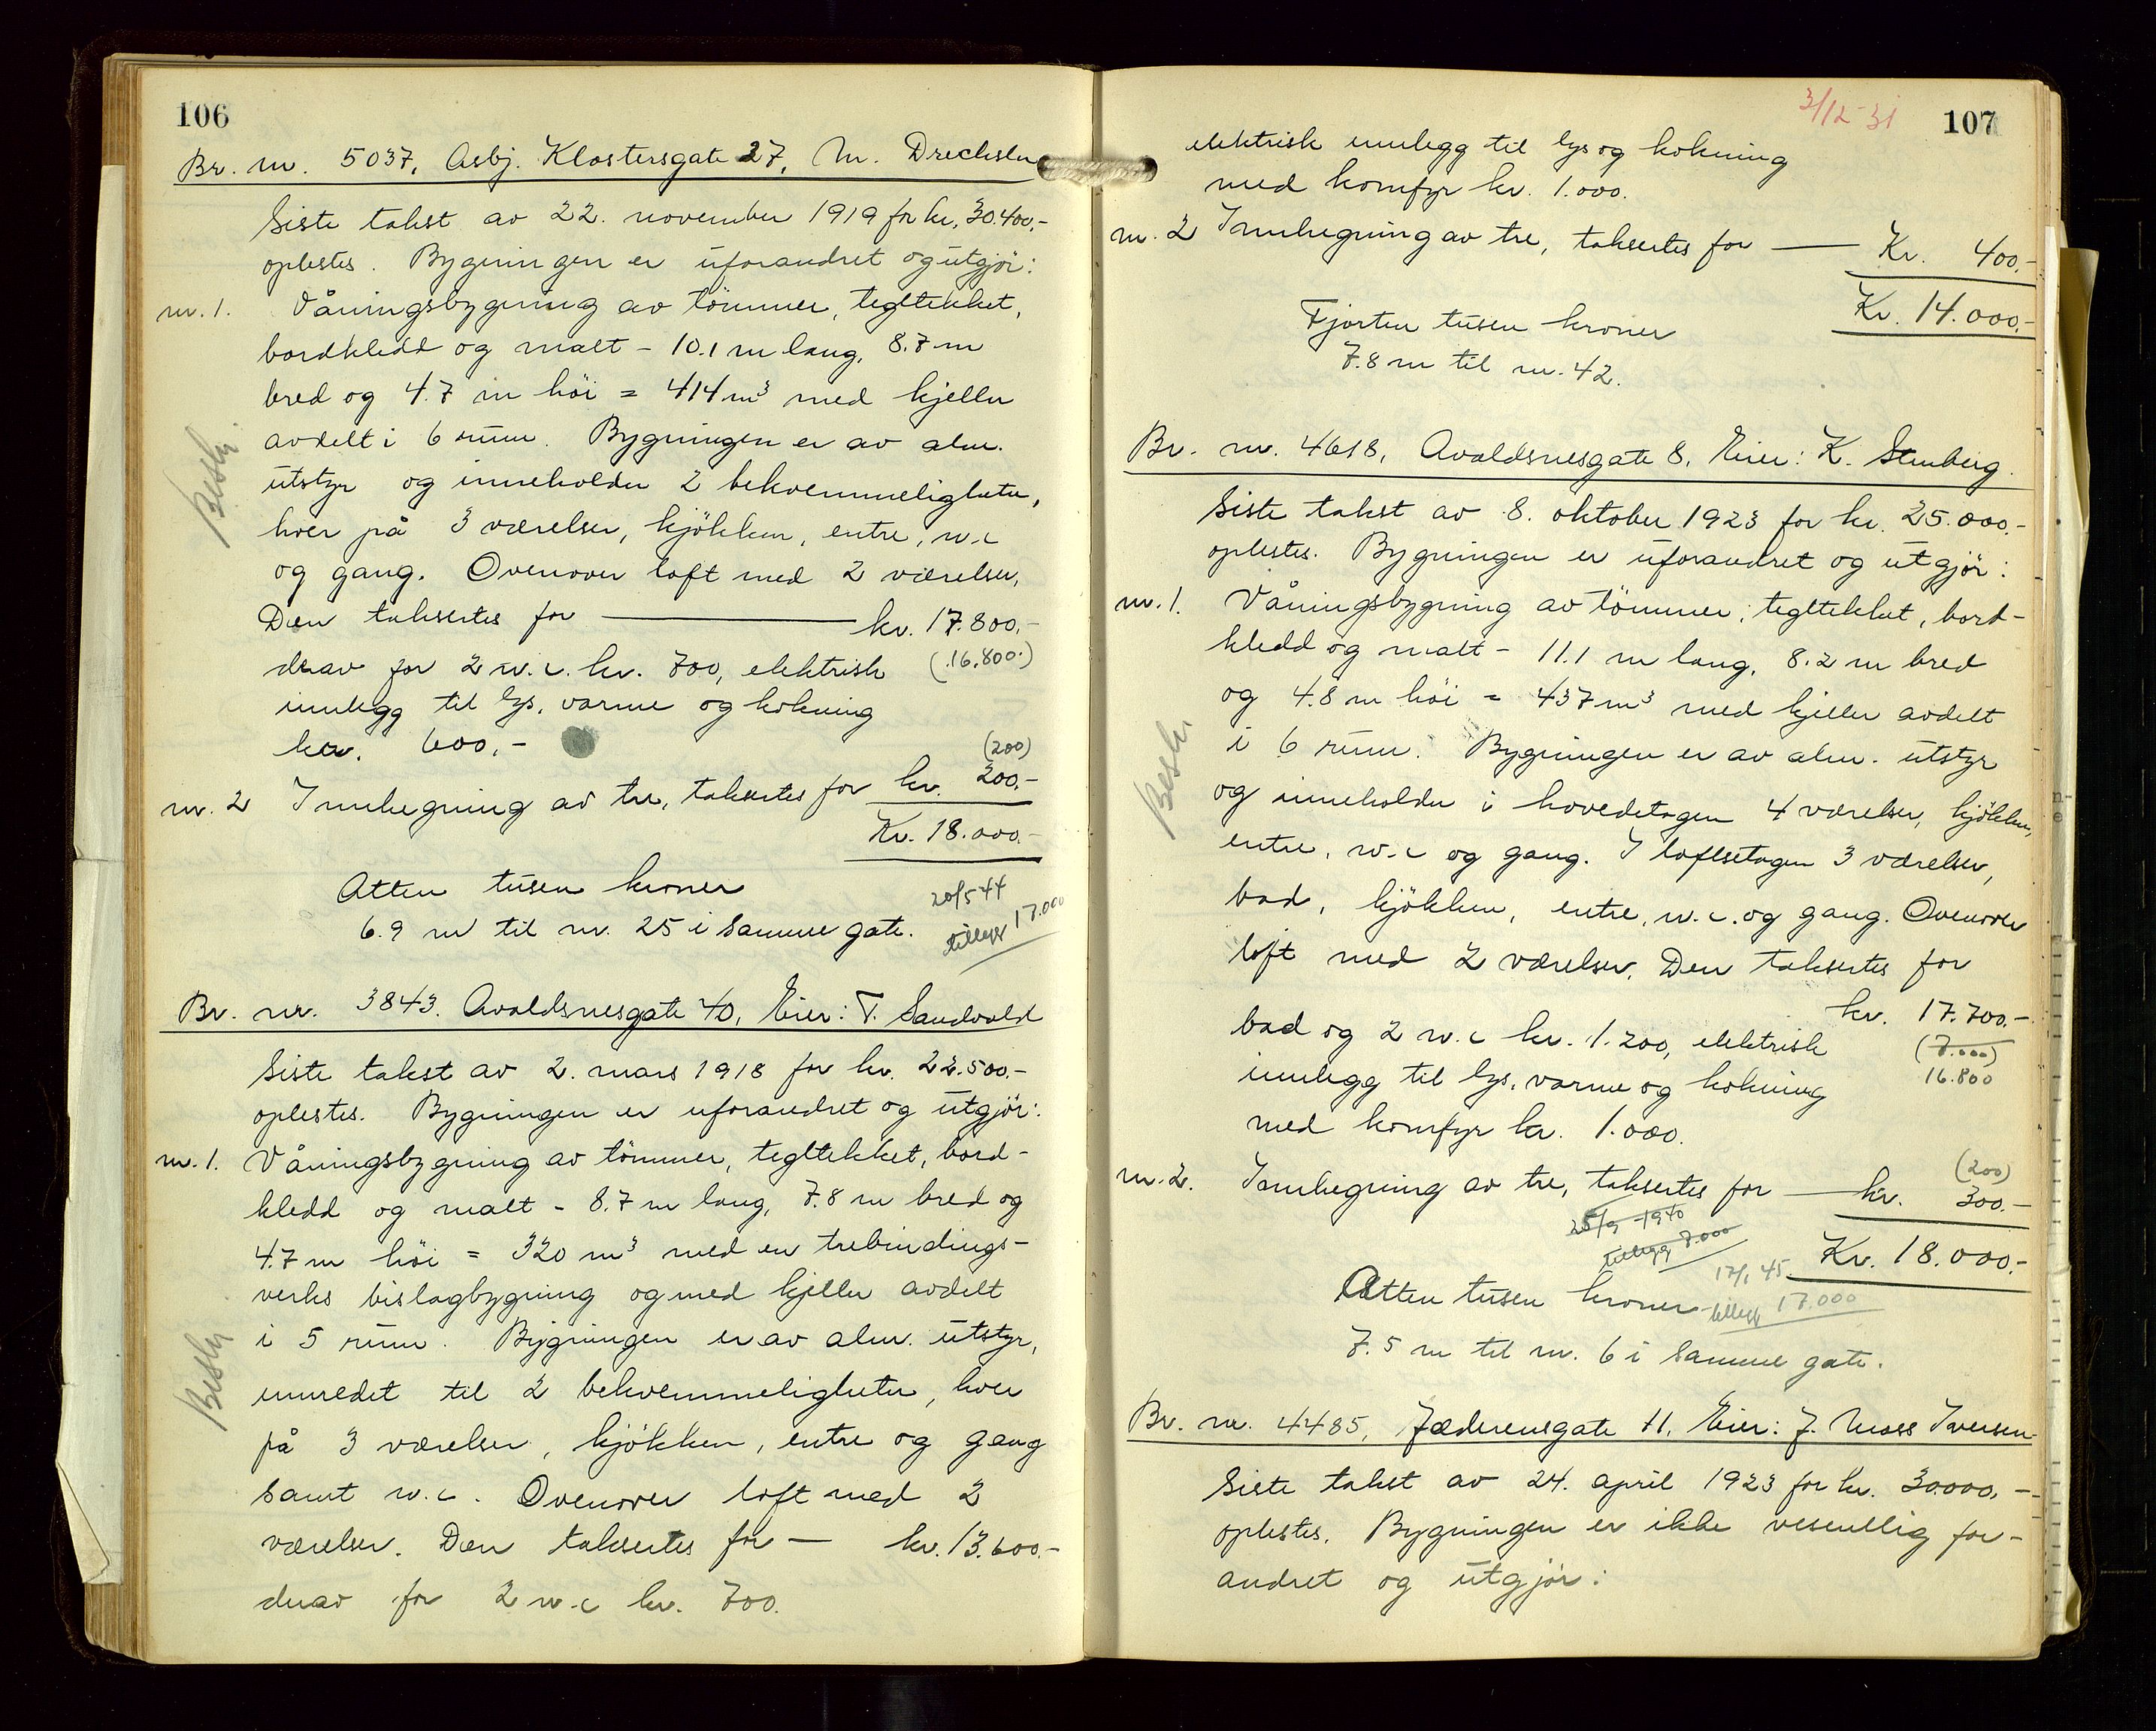 106
Br. nr. 5037, Asbj. Klostersgate 27, M. Drechsler
Siste takst av 22. november 1919 for kr. 30.400,-
oplestes. Bygningen er uforandret og utgjör:
nr. 1. Våningsbygning av tömmer, tegltekket,
bordkledd og malt - 10.1 m lang, 8.7 m
bred og 4.7 m höi = 414 m³ med kjeller
avdelt i 6 rum. Bygningen er av alm.
Beskr.
utstyr og inneholder 2 bekvemmeligheter,
hver på 3 værelser, kjökken, entre, w.c
og gang. Ovenover loft med 2 værelser,
Den taksertes for — kr. 17.800,-
(16.800.)
derav for 2 w.c. kr. 700, elektrisk
innlegg til lys, varme og kokning
kr. 600,-
(200)
nr. 2 Innhegning av tre, taksertes for kr. 200,-
Kr. 18.000,-
Atten tusen kroner
6.9 m til nr. 25 i samme gate.
20/5 44
tillegg 17.000
Br. nr. 3843. Avaldsnesgate 40, Eier: T. Sandvold
Siste takst av 2. mars 1918 for kr. 22.500.-
oplestes. Bygningen er uforandret og utgjör:
nr. 1. Våningsbygning av tömmer, tegltekket, bord-
kledd og malt - 8.7 m lang, 7.8 m bred og
4.7 m höi = 320 m³ med en trebindings-
verks bislagbygning og med kjeller avdelt
Beskr
i 5 rum. Bygningen er av alm. utstyr,
innredet til 2 bekvemmeligheter, hver
på 3 værelser, kjökken, entre og gang
samt w.c. Ovenover loft med 2
værelser. Den taksertes for — kr. 13.600.-
derav for 2 w.c kr. 700.
3/12-31
107
elektrisk innlegg til lys og kokning
med komfyr kr. 1.000.
nr. 2 Innhegning av tre, taksertes for — Kr. 400.-
Kr. 14.000.-
Fjorten tusen kroner
7.8 m til nr. 42.
Br. nr. 4618, Avaldsnesgate 8, Eier: K. Stenberg.
Siste takst av 8. oktober 1923 for kr. 25.000.-
oplestes. Bygningen er uforandret og utgjör:
nr. 1. Våningsbygning av tömmer, tegltekket, bord-
kledd og malt - 11.1 m lang, 8.2 m bred
og 4.8 m höi = 437 m³ med kjeller avdelt
Beskr.
i 6 rum. Bygningen er av alm. utstyr
og inneholder i hovedetagen 4 værelser, kjökken,
entre, w.c og gang. I loftsetagen 3 værelser,
bad, kjökken, entre, w.c. og gang. Ovenover
loft med 2 værelser. Den taksertes for
kr. 17.700.-
(7.000)
16.800
bad og 2 w.c kr. 1.200, elektrisk
innlegg til lys, varme og kokning
med komfyr kr. 1.000.
(200)
nr. 2. Innhegning av tre, taksertes for — kr. 300.-
25/9 - 1940
tillegg 7.000
Kr. 18.000.-
17/1 45
tillegg 17.000
Atten tusen kroner
7.5 m til nr. 6 i samme gate.
Br. nr. 4485, Jæderensgate 11, Eier: J. Moss Iversen
Siste takst av 24. april 1923 for kr. 30.000,-
oplestes. Bygningen er ikke vesentlig for-
andret og utgjör: